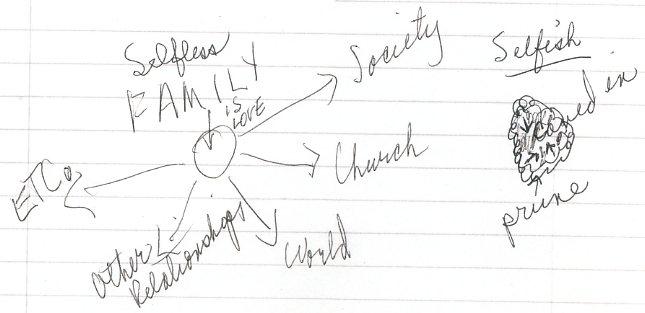 Selfless
FAMILY
IS
LOVE
Society
Church
World
Other
Relationships
ETC.
Selfish
caved in
prune